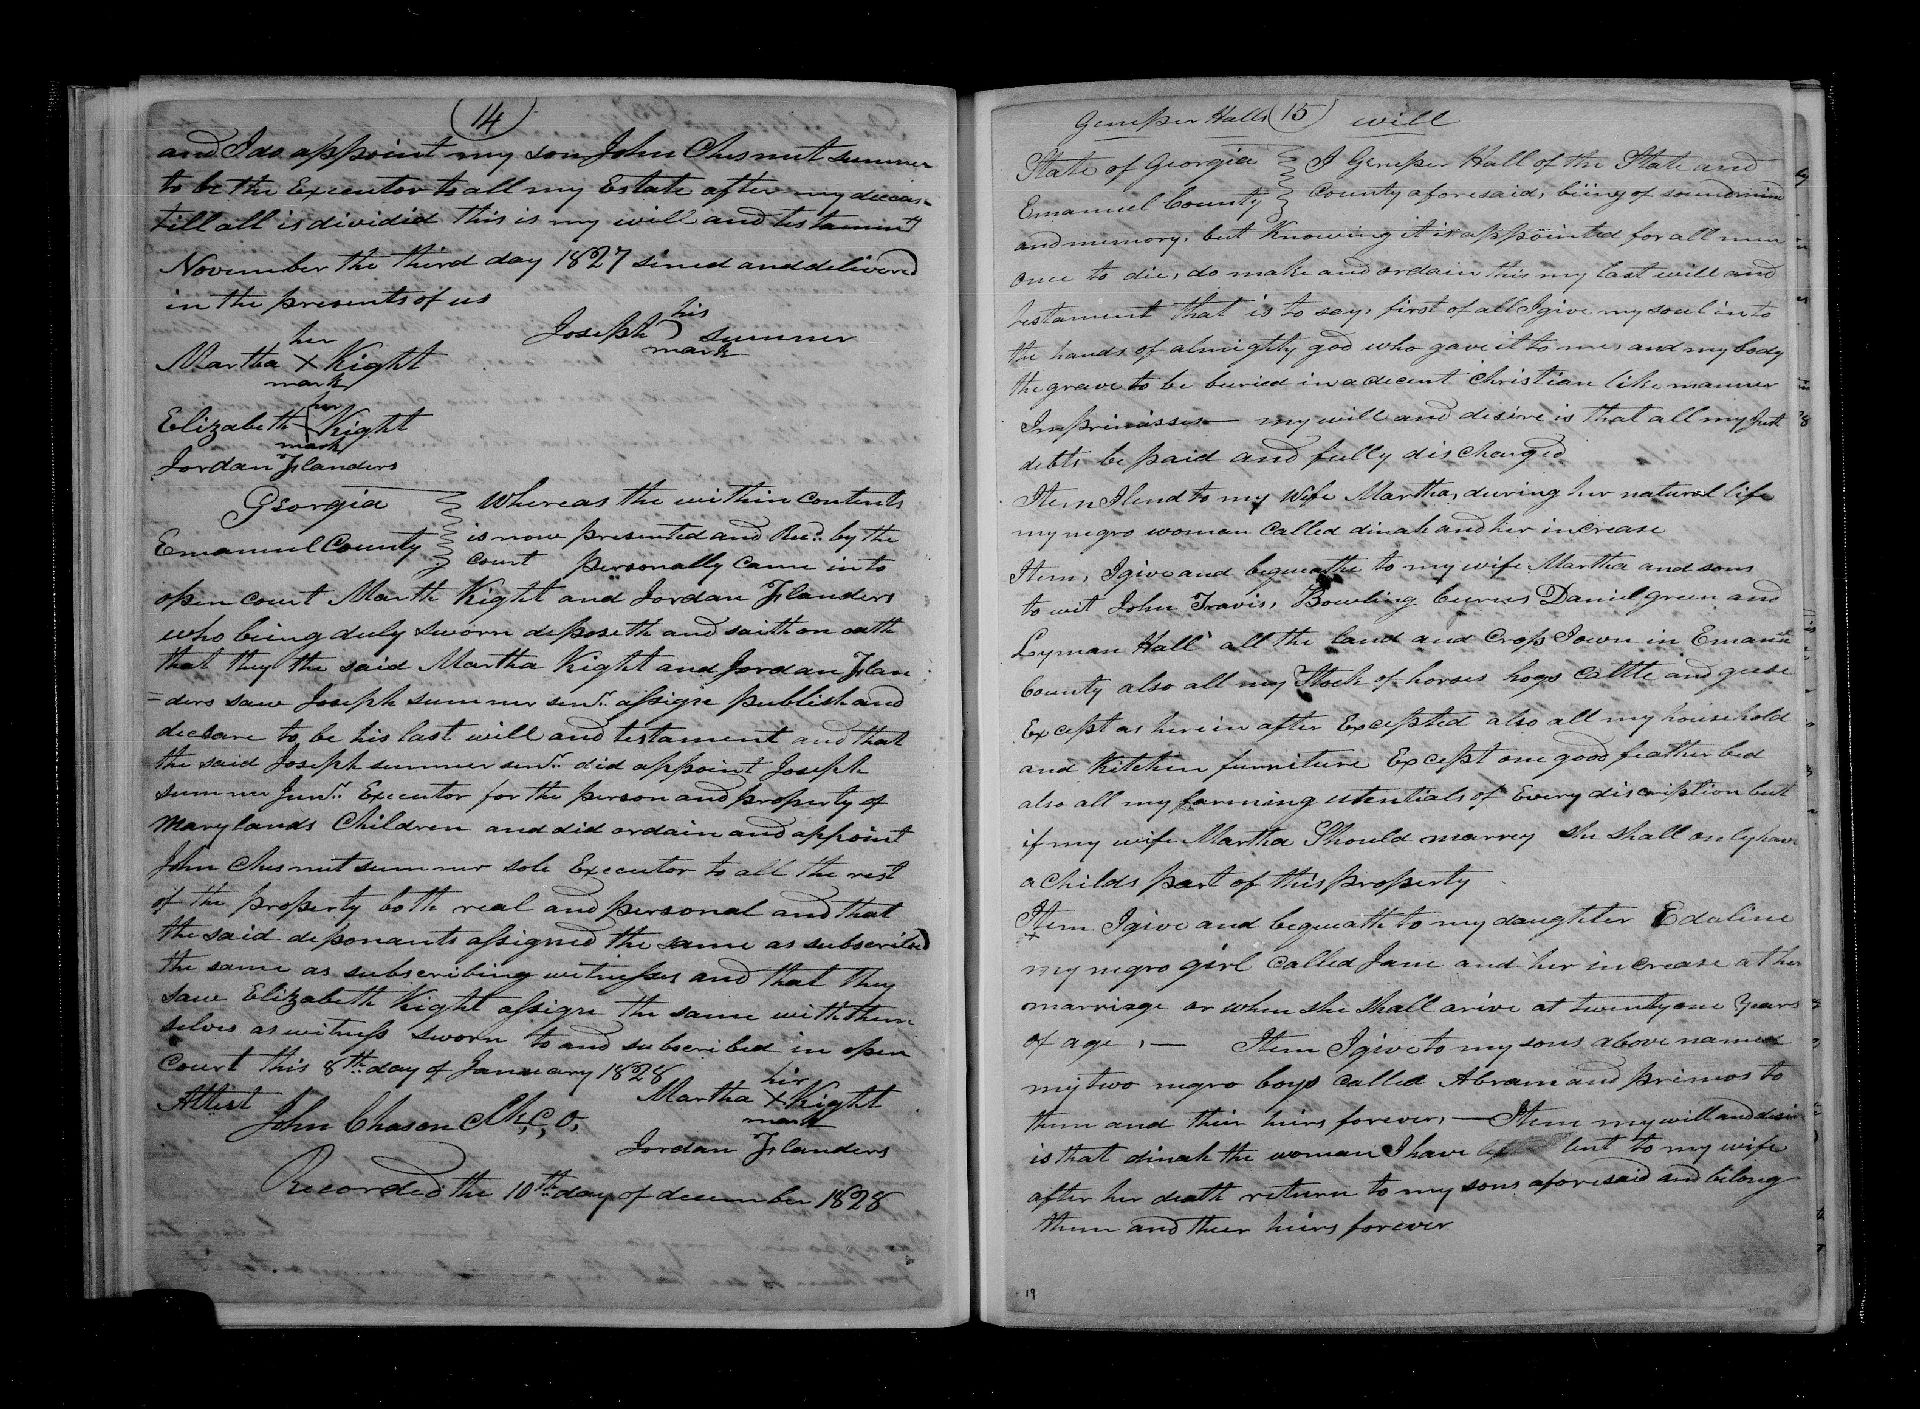 14
and I do appoint my son John Chesnut summer
to be the Executor to all my Estate after my deceas
till all is divided this is my will and testament
November the third day 1827 sined and delivered
in the presents of us
his
Joseph ) summer
mark
her
Martha X Kight
mark
her
Elizabeth Kight
mark
Jordan Flanders
Georgia
Emanuel County
Whereas the within contents
is now presented and Recd. by the
court personally came into
open court Marth Kight and Jordan Flanders
who being duly sworn deposeth and saith on oath
that they the said Martha Kight and Jordan Flan
=ders saw Joseph summer senr. assign publish and
declare to be his last will and testament and that
the said Joseph summer senr. did appoint Joseph
summer Junr. Executor for the person and property of
Marylands Children and did ordain and appoint
John Chesnut summer sole Executor to all the rest
of the property both real and personal and that
the said deponants assigned the same as subscribed
the same as subscribing witnesses and that they
saw Elizabeth Kight assign the same with them
selves as witness sworn to and subscribed in open
Court this 8th. day of January 1828
Attest
John Chason Clk, C, O,
her
Martha X Kight
mark
Jordan Flanders
Recorded the 10th day of december 1828
Genesser Halls 15 will
State of Georgia
Emanuel County
I Genesser Hall of the State and
County aforesaid, biing of sound mind
and memory, but Knowing it is appointed for all men
once to die, do make and ordain this my last will and
testament that is to say, first of all I give my soul into
the hands of almighty god who gave it to me, and my body
the grave to be buried in a decent Christian like manner
Imprimassus— my will and desire is that all my just
debts be paid and fully discharged
Item I lend to my Wife Martha, during her natural life
my negro woman Called dinah and her increase
Item, I give and bequeathe to my wife Martha and sons
to wit John Travis, Bowling burns Daniel green and
Lyman Hall all the land and Crop I own in Emanuel
County also all my Stock of horses hogs Cattle and geese
Except as herein after Excepted also all my household
and Kitchen furniture Except one good feather bed
also all my farming utentials of Every discription but
if my wife Martha Should marrey she shall only have
a childs part of this property
Item I give and bequeath to my daughter Edaline
my negro girl Called Jane and her increase at her
marriage or when she shall arive at twenty one Years
of age, — Item I give to my sons above named
my two negro boys Called Abram and primos to
them and their hiirs forever, — Item my will and desire
is that dinah the woman I have lent to my wife
after her death return to my sons aforesaid and belong
them and their heirs forever
19